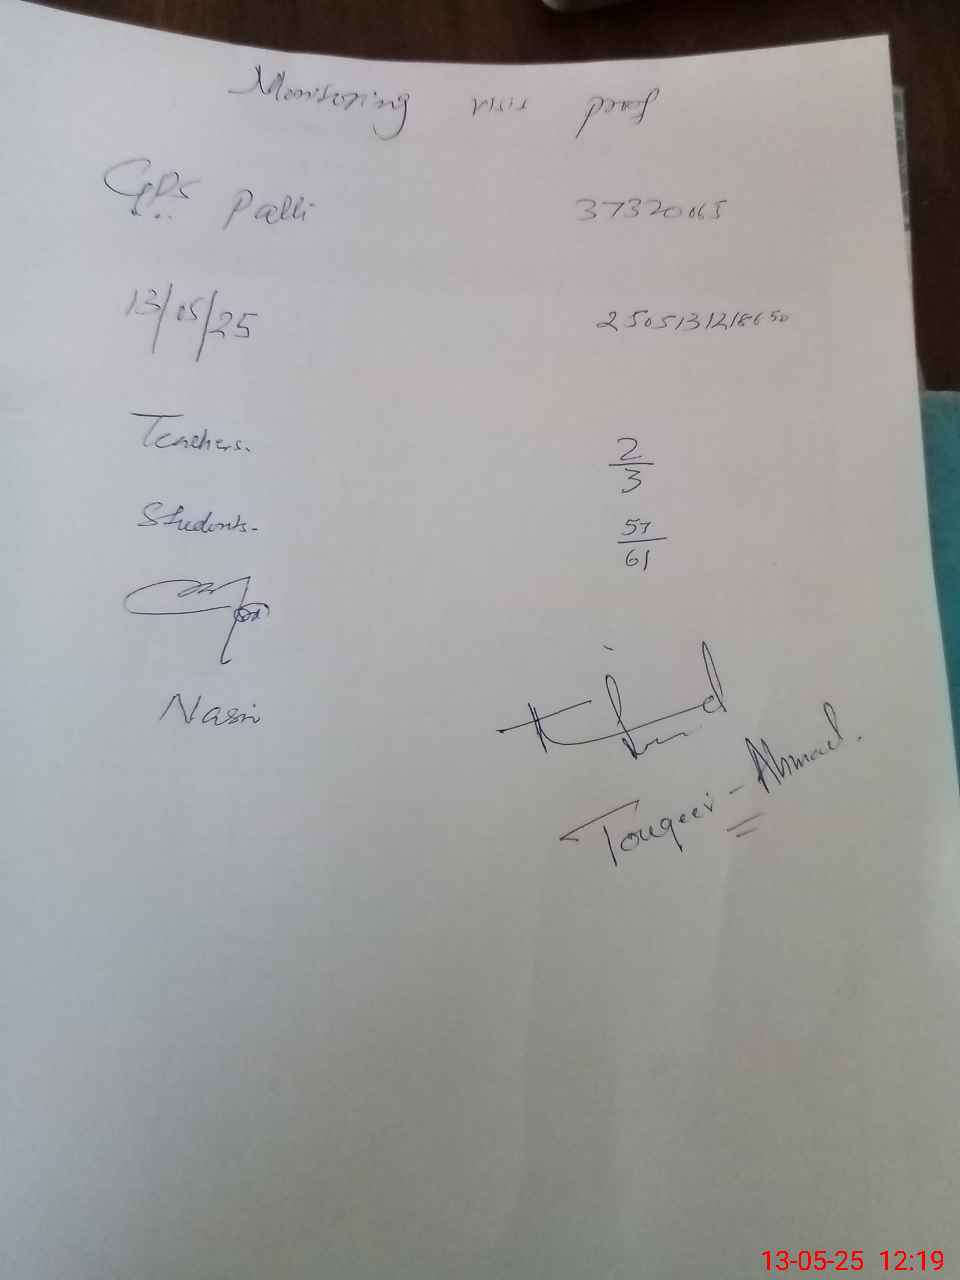 Monitoring visit proof
GPS Palli 37320065
13/05/25 2505131218650
Teachers. 2/3
Students- 57/61
Nasir
Touqeer - Ahmad.
13-05-25 12:19